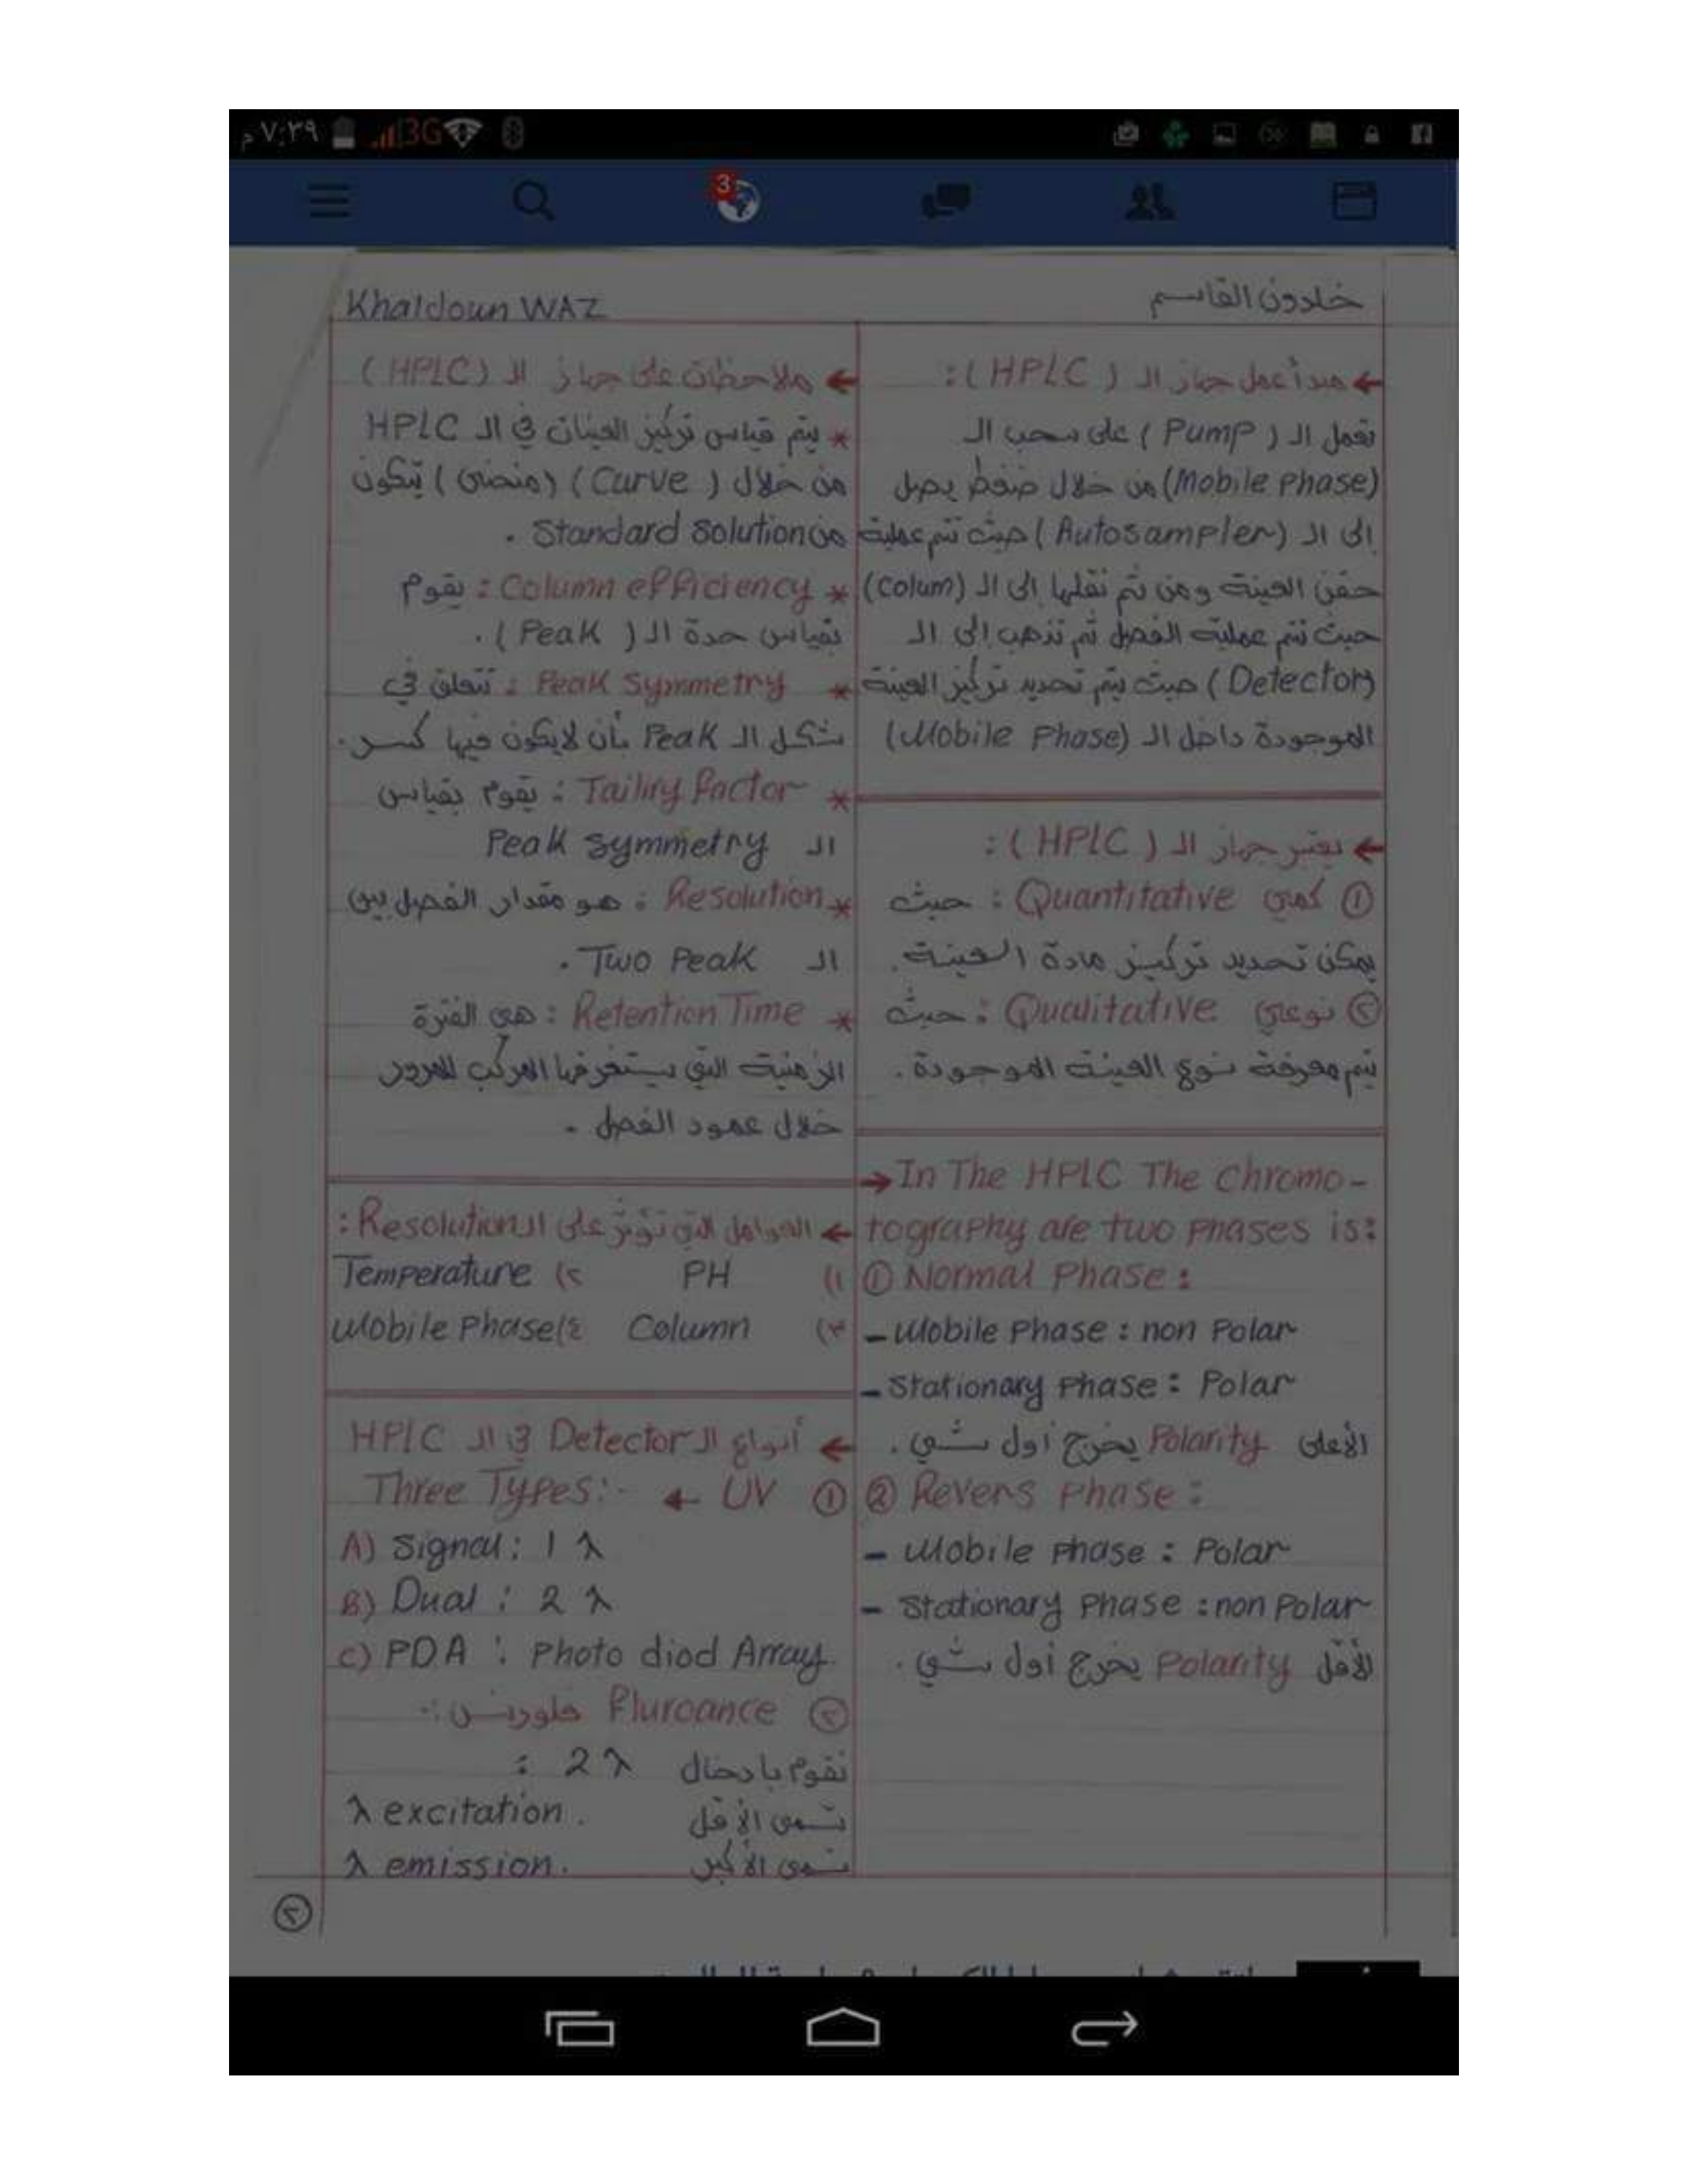 ٧:٣٩ م
3G
3
Khaldoun WAZ
خلدون القاسم
← مبدأ عمل جهاز الـ ( HPLC ) :
تعمل الـ ( Pump ) على سحب الـ
(Mobile Phase) من خلال ضغط يصل
إلى الـ (Autosampler) حيث تتم عملية
حقن العينة ومن ثم نقلها إلى الـ (Colum)
حيث تتم عملية الفصل ثم تذهب إلى الـ
(Detector) حيث يتم تحديد تركيز العينة
الموجودة داخل الـ (Mobile Phase)
← يعتبر جهاز الـ ( HPLC ) :
① كمي Quantitative : حيث
يمكن تحديد تركيز مادة العينة .
② نوعي Qualitative : حيث
يتم معرفة نوع العينة الموجودة .
→ In The HPLC The Chromo-
tography are two Phases is:
① Normal Phase :
- Mobile Phase : non Polar
- Stationary Phase : Polar
الأعلى Polarity يخرج أول شي .
② Revers Phase :
- Mobile Phase : Polar
- Stationary Phase : non Polar
الأقل Polarity يخرج أول شي .
← ملاحظات على جهاز الـ (HPLC)
* يتم قياس تركيز العينات في الـ HPLC
من خلال ( Curve ) (منحنى) يتكون
من Standard Solution .
* Column efficiency : يقوم
بقياس حدة الـ ( Peak ) .
* Peak Symmetry : تتعلق في
شكل الـ Peak بأن لا يكون فيها كسر .
* Tailing factor : يقوم بقياس
الـ Peak Symmetry
* Resolution : هو مقدار الفصل بين
الـ Two Peak .
* Retention Time : هي الفترة
الزمنية التي يستغرقها المركب للمرور
خلال عمود الفصل .
← العوامل التي تؤثر على الـ Resolution :
١) PH ٢) Temperature
٣) Column ٤) Mobile Phase
← أنواع الـ Detector في الـ HPLC
① UV ← Three Types:-
A) Signal : 1 λ
B) Dual : 2 λ
C) PDA : Photo diod Array
② Fluroance فلورنس :-
نقوم بادخال 2 λ :
تسمى الأقل λ excitation .
تسمى الأكبر λ emission .
②